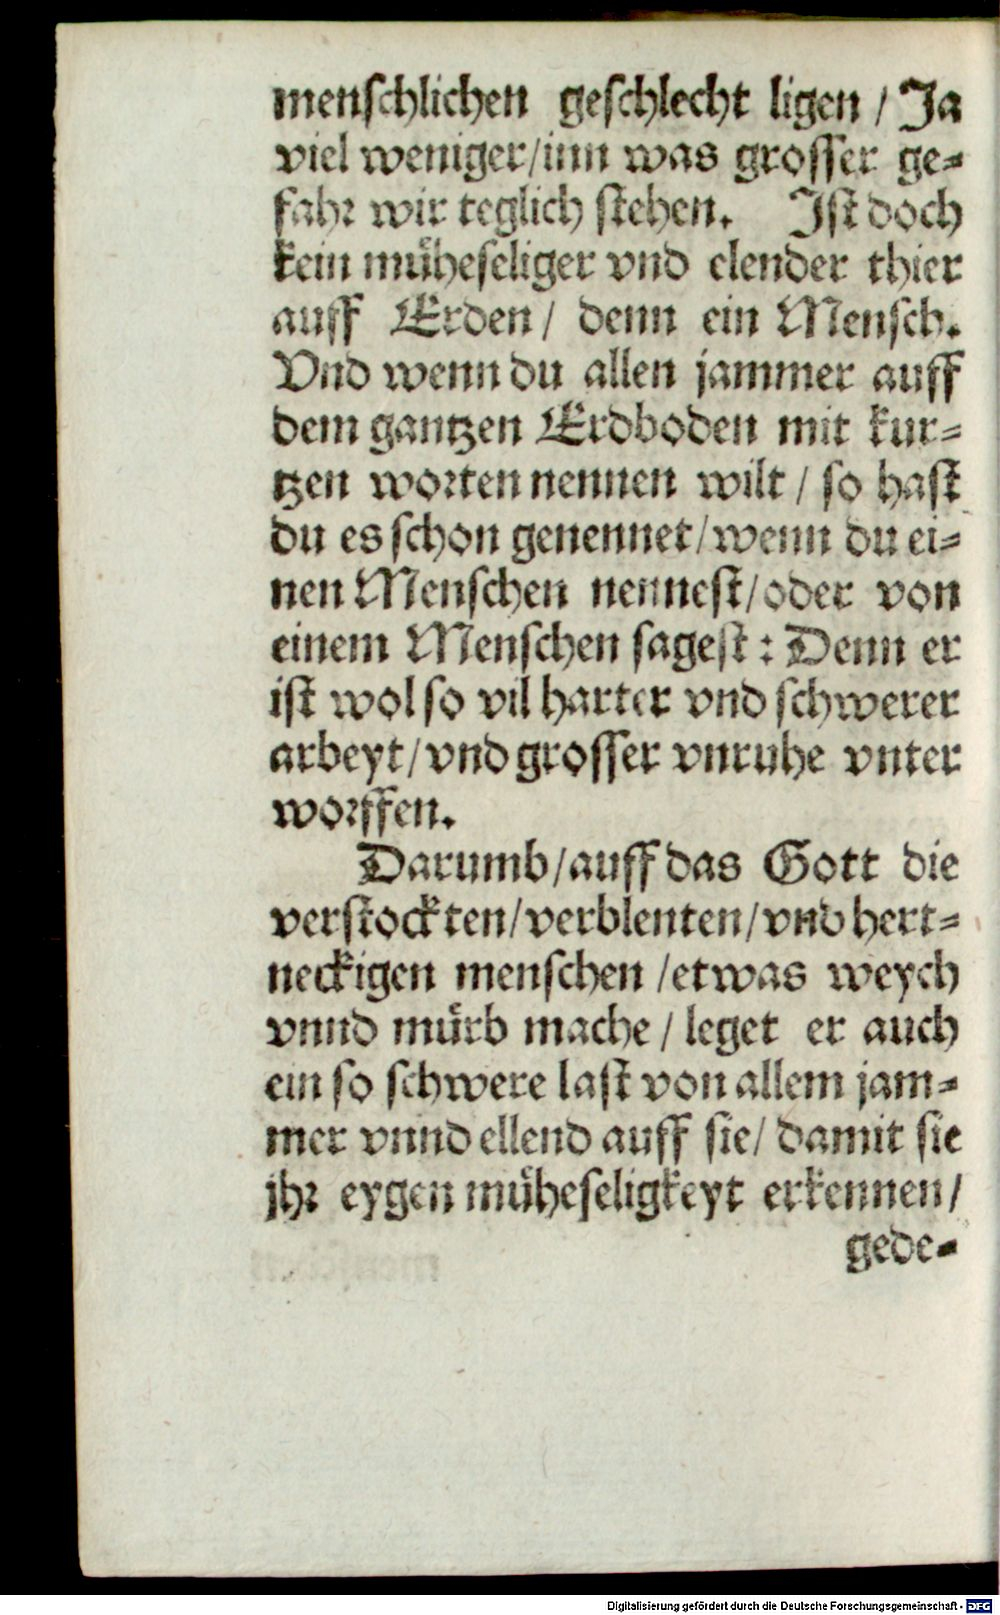 menſchlichen geſchlecht ligen / Ja
viel weniger/inn was groſſer ge⸗
fahr wir teglich ſtehen. Iſt doch
kein müheſeliger vnd elender thier
auff Erden / denn ein Menſch.
Vnd wenn du allen jammer auff
dem gantzen Erdboden mit kur⸗
tzen worten nennen wilt / ſo haſt
du es ſchon genennet/wenn du ei⸗
nen Menſchen nenneſt/oder von
einem Menſchen ſageſt : Denn er
iſt wol ſo vil harter vnd ſchwerer
arbeyt/vnd groſſer vnruhe vnter
worffen.
Darumb/auff das Gott die
verſtockten/verblenten/vnd hert⸗
neckigen menſchen /etwas weych
vnnd mürb mache / leget er auch
ein ſo ſchwere laſt von allem jam⸗
mer vnnd ellend auff ſie/ damit ſie
jhr eygen müheſeligkeyt erkennen/
gede⸗
Digitalisierung gefördert durch die Deutsche Forschungsgemeinschaft - DFG